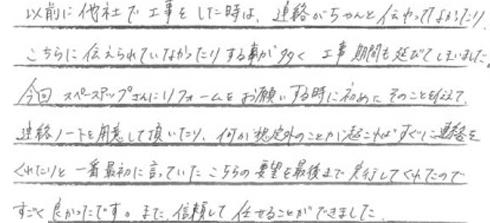 以前に他社で工事をした時は、連絡がちゃんと伝わってなかったり
こちらに伝えられていなかったりする事が多く 工事期間も延びてしまいました。
今回 スペースアップさんにリフォームをお願いする時に初めに そのことを伝えて、
連絡ノートを用意して頂いたり、何か想定外のことが起こればすぐに連絡を
くれたりと 一番最初に言っていた こちらの要望を最後まで実行してくれたので
すごく良かったです。また、信頼して任せることができました